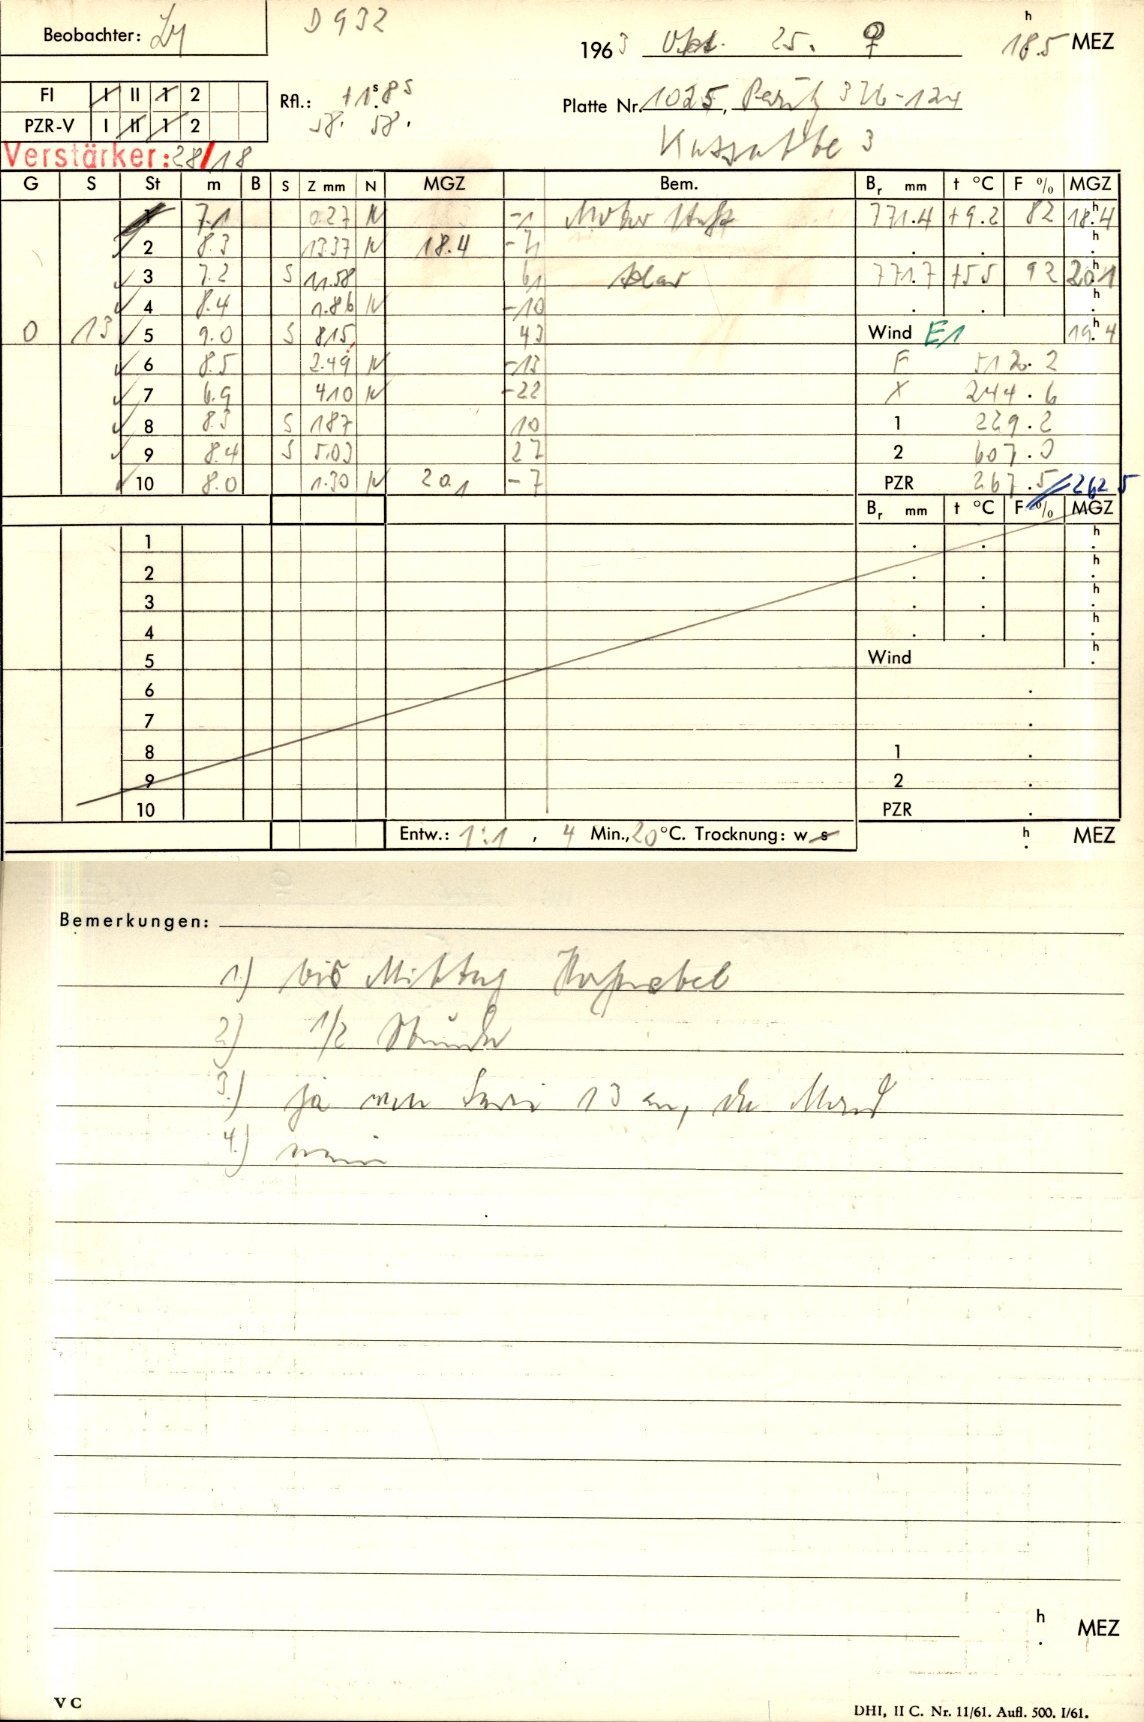 Beobachter: Ly
D 932
1963 Okt. 25. ♀ 18h5 MEZ
FI I II 1 2
PZR-V I II 1 2
Rfl.: +1s.85
58. 58.
Platte Nr. 1025, Perutz 326-124
Kassette 3
Verstärker: 28/18
G S St m B S Z mm N MGZ Bem. Br mm t °C F % MGZ
7.1 0.27 N -1 Motor 771.4 +9.2 82 18h.4
2 8.3 1337 N 18.4 h
3 7.2 S 11.58 61 klar 771.7 +5.5 92 20h1
4 8.4 1.86 N -10 h
0 13 5 9.0 S 815 43 Wind E1 19h.4
6 8.5 2.49 N -13 F 512.2
7 6.9 410 N -22 X 244.6
8 8.3 S 187 10 1 229.2
9 8.4 S 5.03 27 2 607.0
10 8.0 1.30 N 20.1 -7 PZR 267.5 / 262 5
Br mm t °C F % MGZ
1 h
2 h
3 h
4 h
5 Wind h
6
7
8 1
9 2
10 PZR
Entw.: 1:1, 4 Min., 20 °C. Trocknung: w s h MEZ
Bemerkungen:
1.) bis Mittag Hochnebel
2) 1/2 Stunde
3.) ja von Serie 13 an, du Mond
4.) nein
h MEZ
V C
DHI, II C. Nr. 11/61. Aufl. 500. I/61.